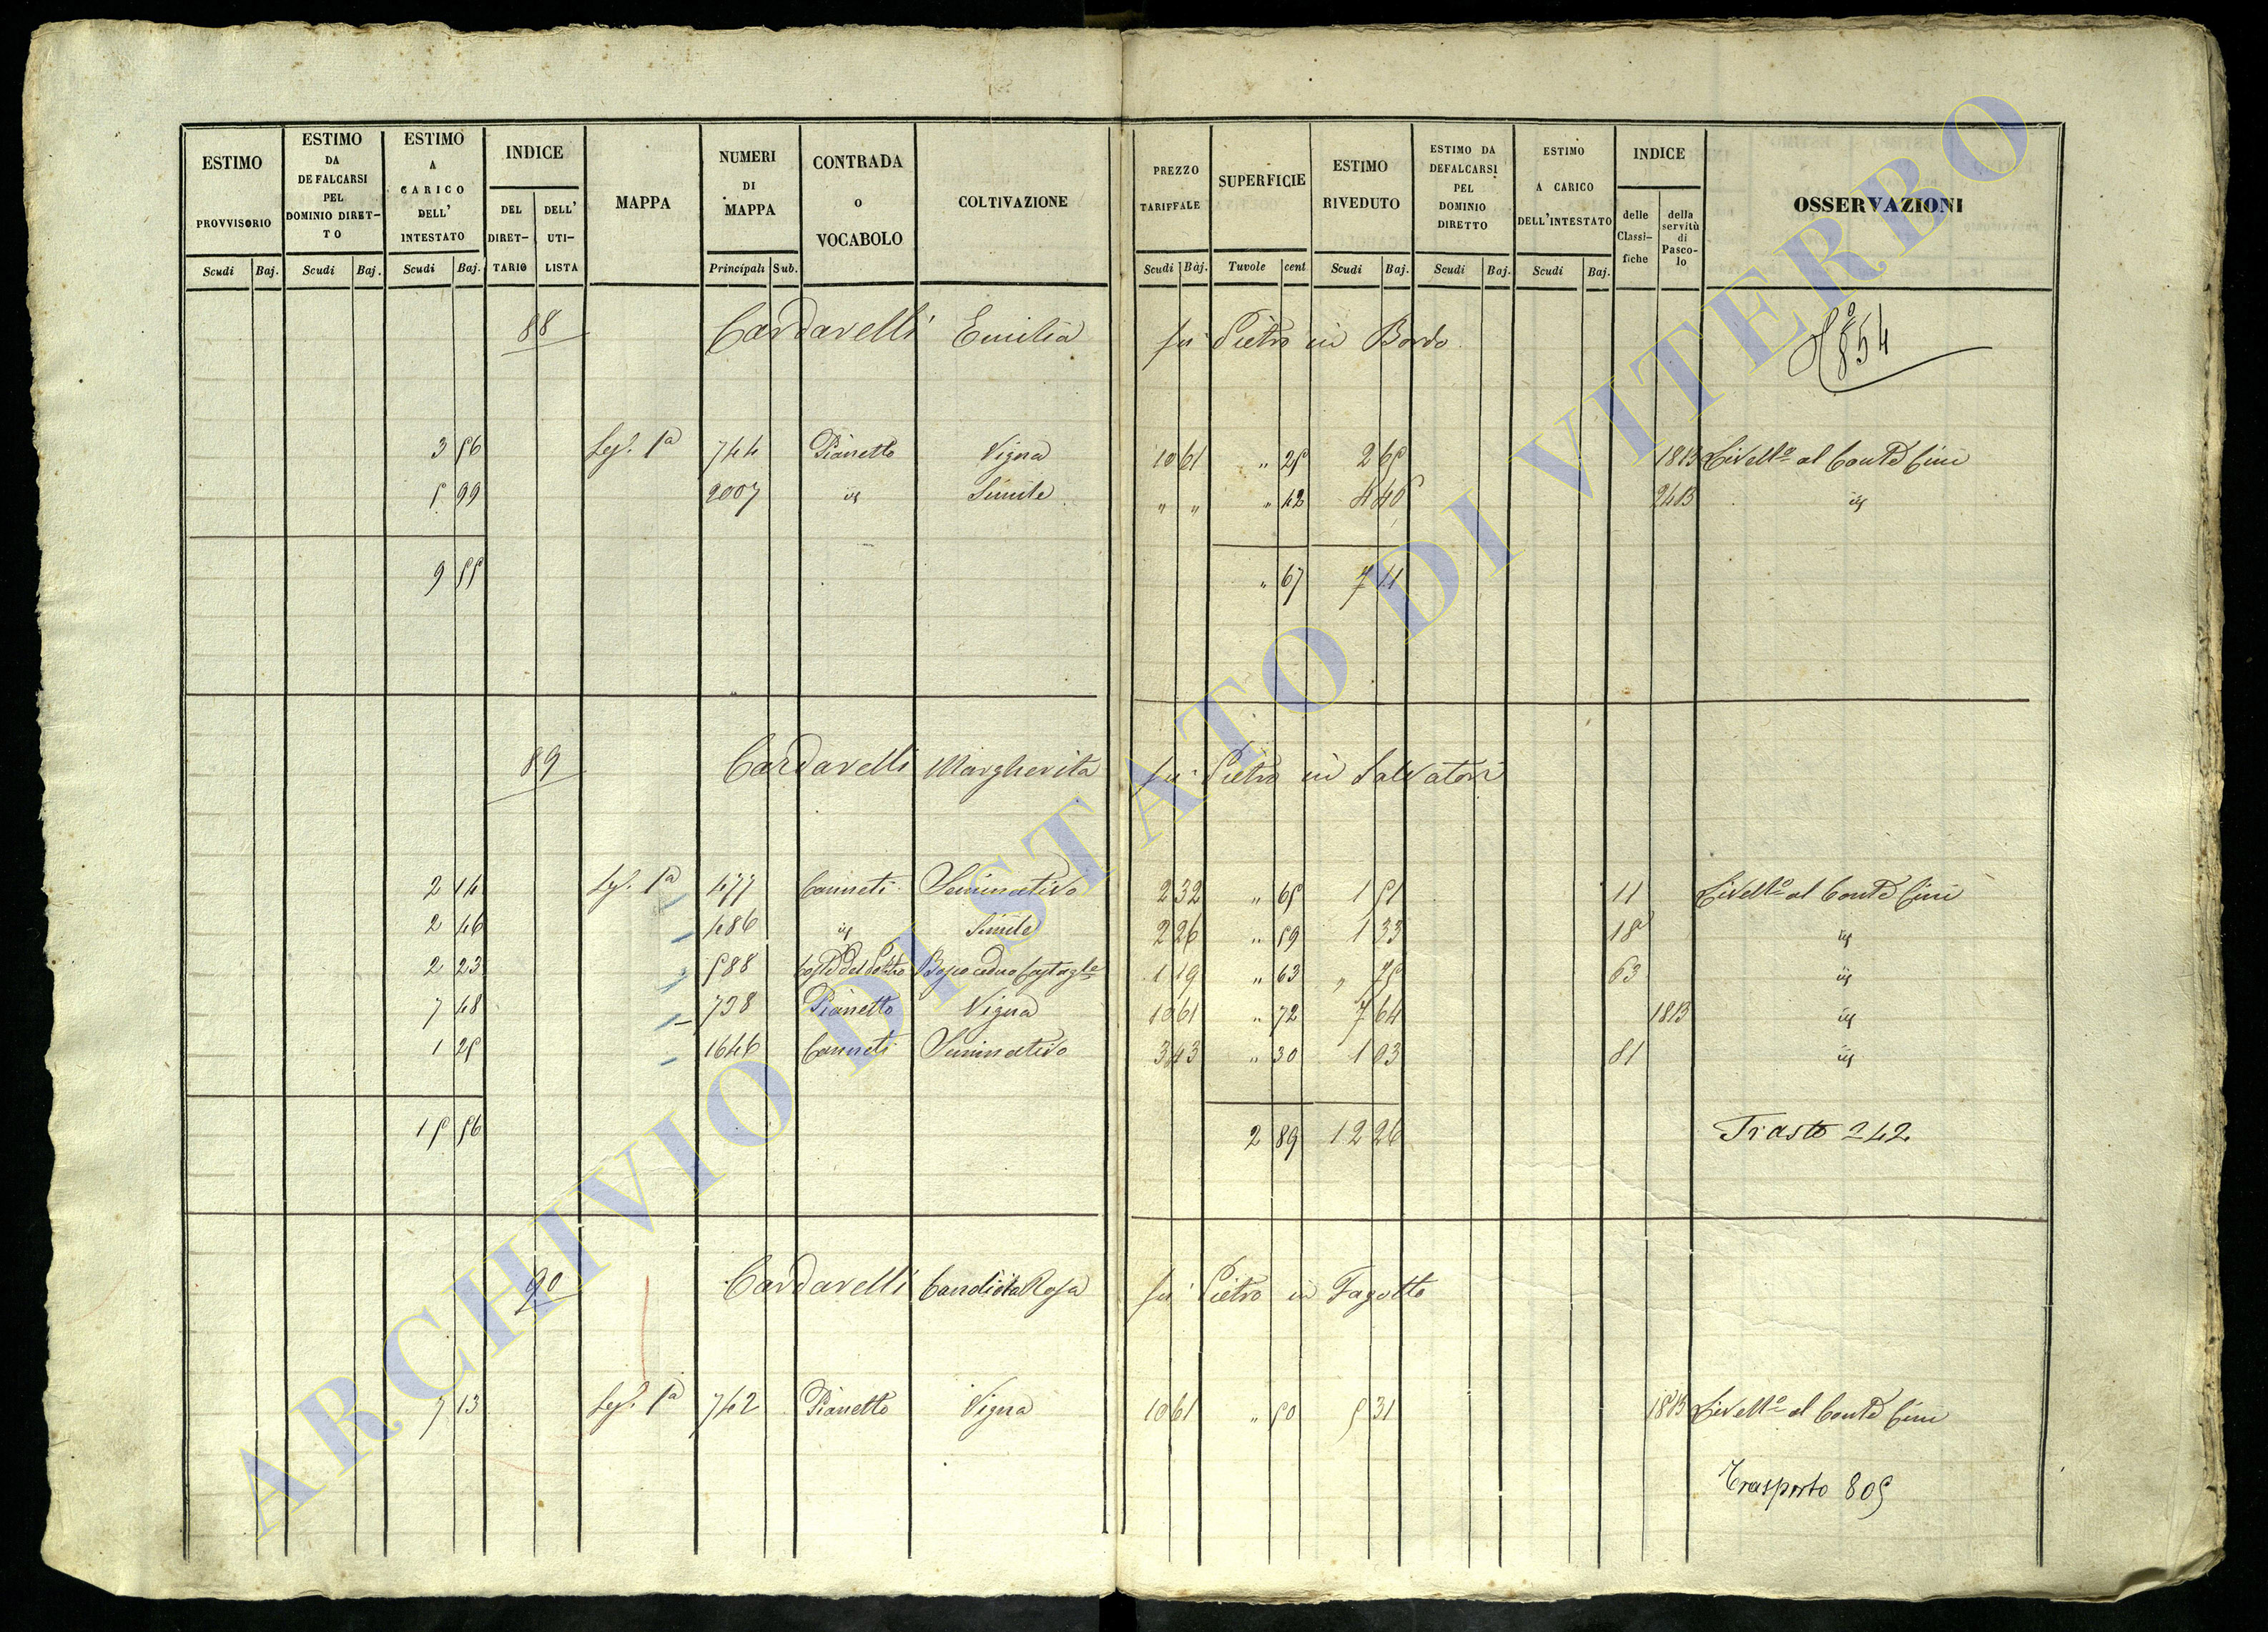 ESTIMO PROVVISORIO
ESTIMO DA DEFALCARSI PEL DOMINIO DIRET-TO
ESTIMO A CARICO DELL' INTESTATO
INDICE
DEL DIRET-TARIO
DELL' UTI-LISTA
MAPPA
NUMERI DI MAPPA
CONTRADA o VOCABOLO
COLTIVAZIONE
PREZZO TARIFFALE
SUPERFICIE
ESTIMO RIVEDUTO
ESTIMO DA DEFALCARSI PEL DOMINIO DIRETTO
ESTIMO A CARICO DELL'INTESTATO
INDICE
delle Classi-fiche
della servitù di Pasco-lo
OSSERVAZIONI
Scudi Baj. Scudi Baj. Scudi Baj. Principali Sub. Scudi Baj. Tavole cent Scudi Baj. Scudi Baj. Scudi Baj.
88 Cardarelli Emilia fu Pietro in Bordo 854
3 56 Sez. 1a 744 Pianetto Vigna 10 61 " 25 2 65 1813 Livello al Conte Cini
5 99 2007 id Simile " " " 42 4 46 2413 id
9 55 " 67 7 11
89 Cardarelli Margherita fu Pietro in Salvatori
2 14 Sez. 1a 477 Canneti Seminativo 2 32 " 65 1 51 11 Livello al Conte Cini
2 46 486 id Simile 2 26 " 59 1 33 18 id
2 23 588 Bosco ceduo 1 19 " 63 " 75 63 id
7 48 738 Pianetto Vigna 10 61 " 72 7 64 1813 id
1 25 1646 Canneti Seminativo 3 43 " 30 1 03 81 id
15 56 2 89 12 26 Trasto 242
90 Cardarelli Candida Rosa fu Pietro in Fagotto
7 13 Sez. 1a 742 Pianetto Vigna 10 61 " 50 5 31 1813 Livello al Conte Cini
Trasporto 805
ARCHIVIO DI STATO DI VITERBO